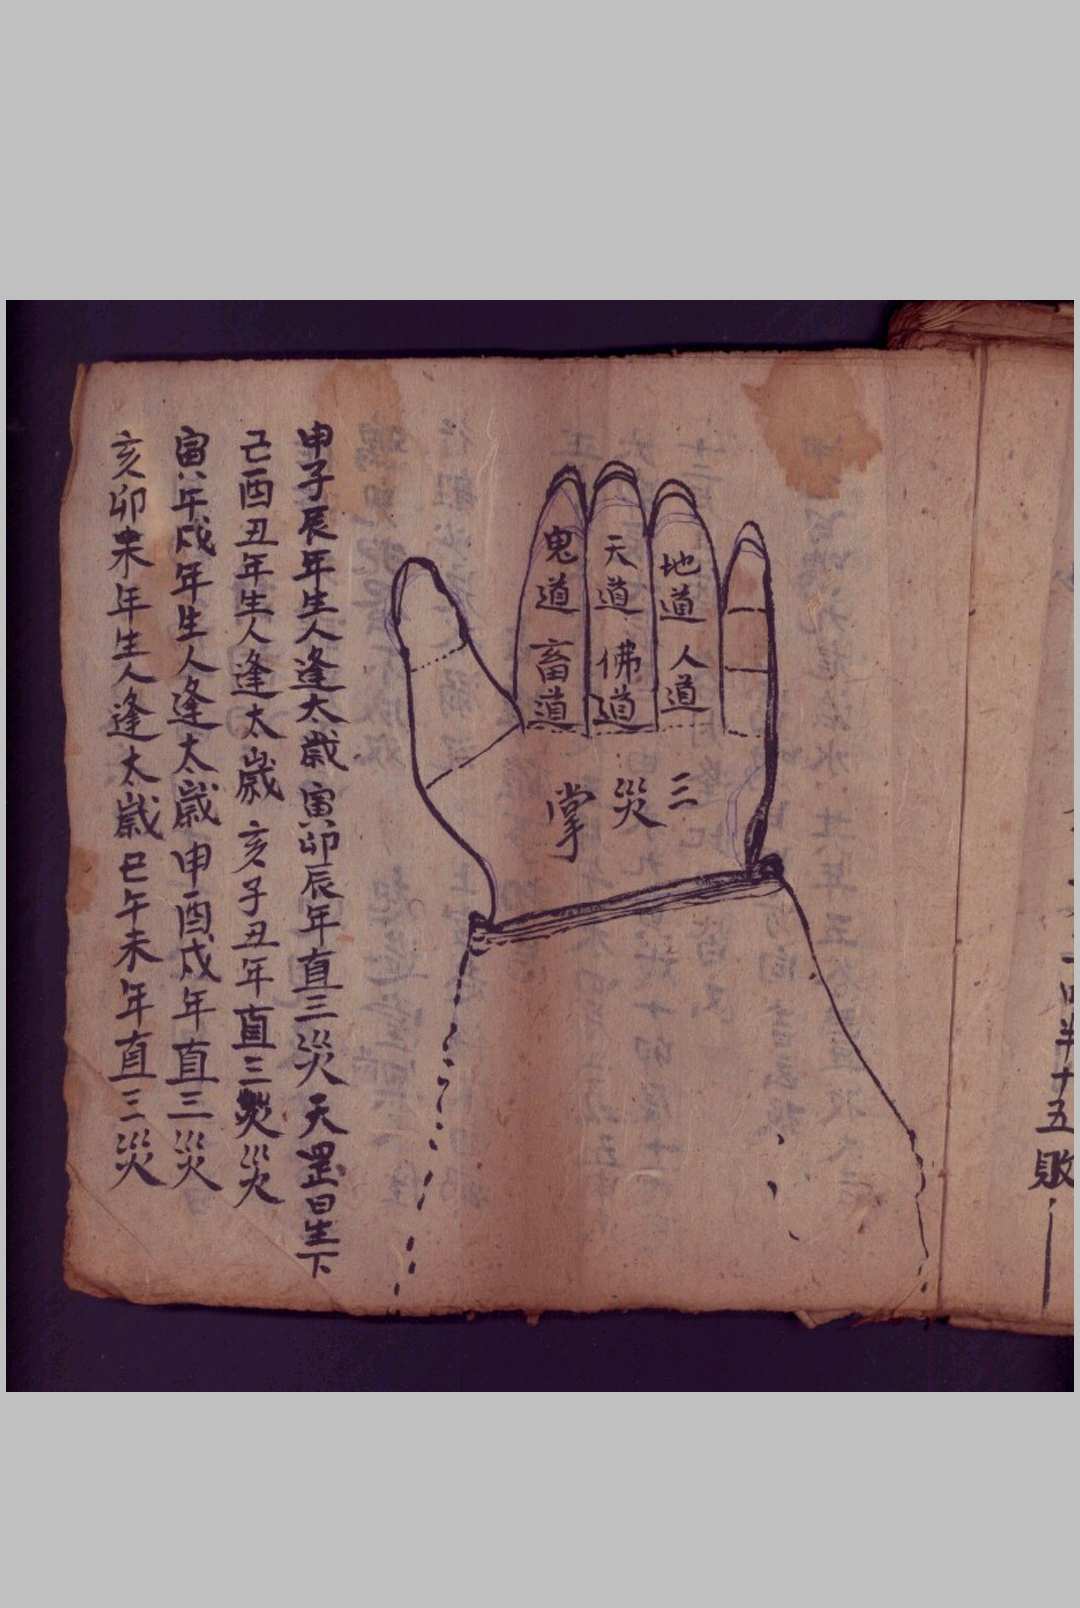 十五敗
地道 人道
天道 佛道
鬼道 畜道
三災掌
申子辰年生人逢太歲 寅卯辰年直三災 天罡日生下
己酉丑年生人逢太歲 亥子丑年直三災
寅午戌年生人逢太歲 申酉戌年直三災
亥卯未年生人逢太歲 巳午未年直三災